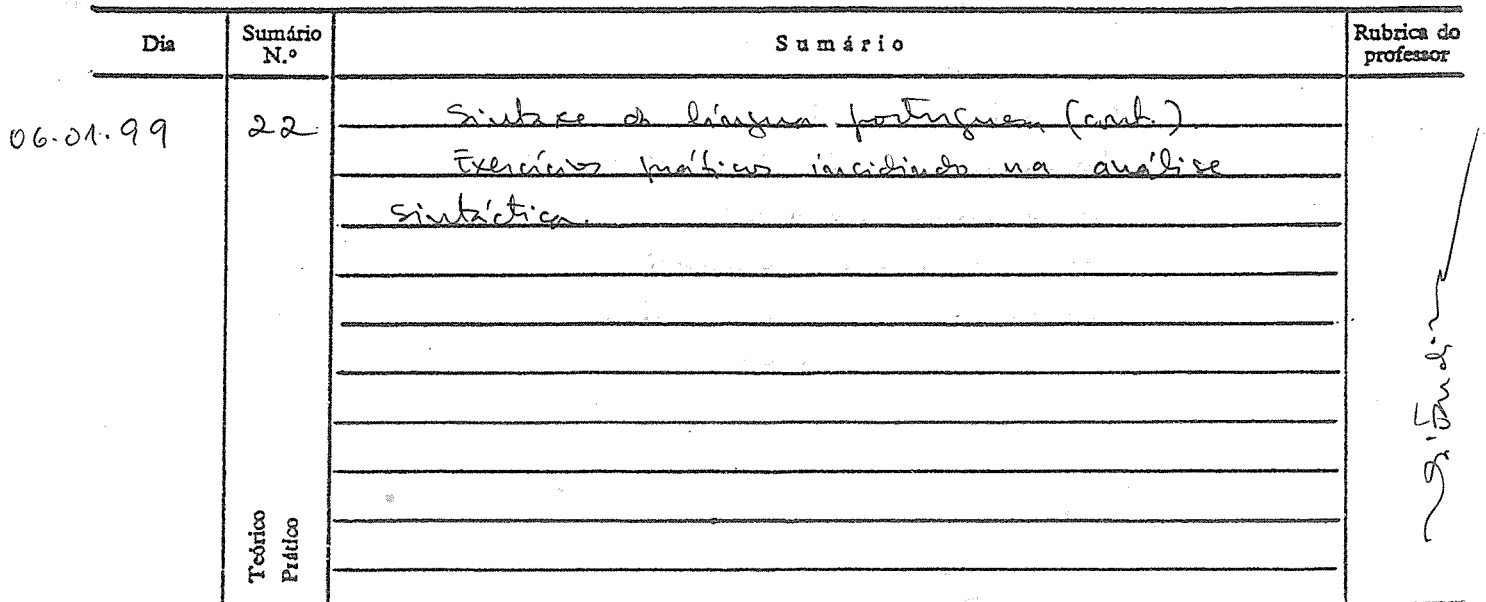 Dia Sumário N.º Sumário Rubrica do professor
06.01.99 22 Sintaxe da língua portuguesa (cont.)
Exercícios práticos incidindo na análise
sintáctica.
Teórico
Prático